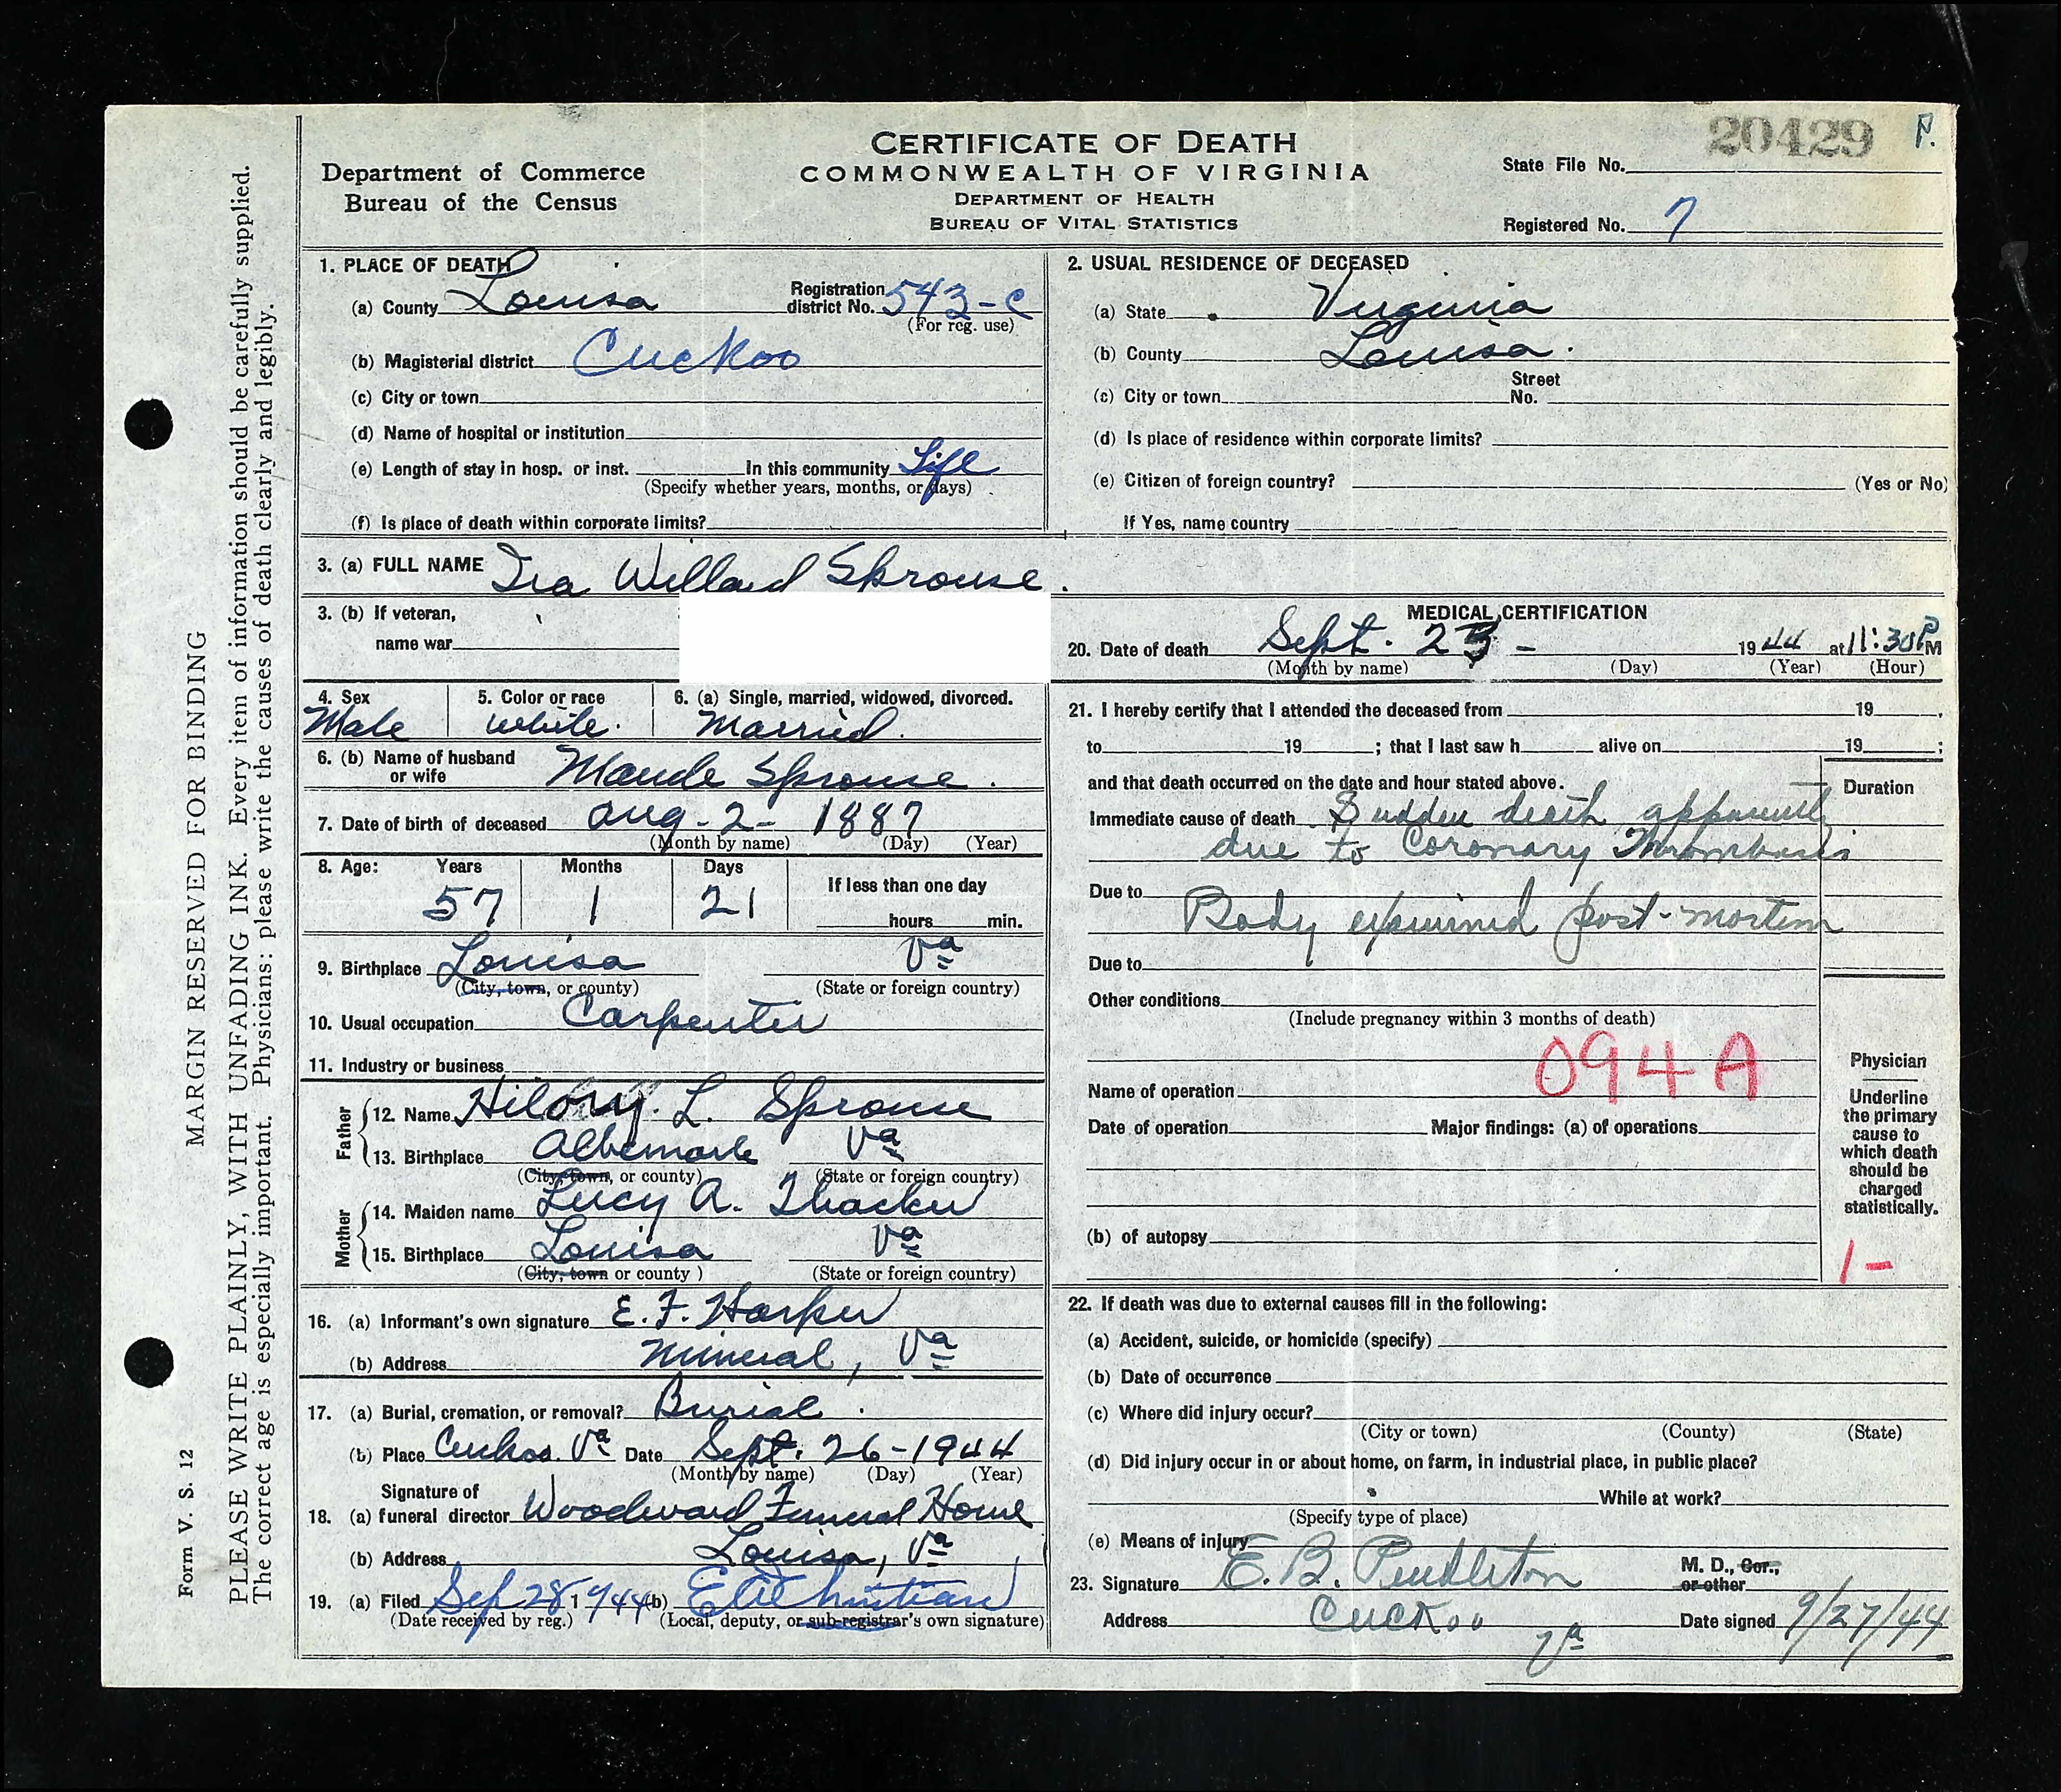 20429 P.
CERTIFICATE OF DEATH
COMMONWEALTH OF VIRGINIA
DEPARTMENT OF HEALTH
BUREAU OF VITAL STATISTICS
Department of Commerce
Bureau of the Census
State File No.
Registered No. 7
MARGIN RESERVED FOR BINDING
PLEASE WRITE PLAINLY, WITH UNFADING INK. Every item of information should be carefully supplied.
The correct age is especially important. Physicians: please write the causes of death clearly and legibly.
Form V. S. 12
1. PLACE OF DEATH
(a) County Louisa Registration district No. 543-C
(For reg. use)
(b) Magisterial district Cuckoo
(c) City or town
(d) Name of hospital or institution
(e) Length of stay in hosp. or inst. In this community Life
(Specify whether years, months, or days)
(f) Is place of death within corporate limits?
2. USUAL RESIDENCE OF DECEASED
(a) State Virginia
(b) County Louisa.
(c) City or town Street No.
(d) Is place of residence within corporate limits?
(e) Citizen of foreign country? (Yes or No)
If Yes, name country
3. (a) FULL NAME Ira Willard Sprouse.
3. (b) If veteran,
name war
4. Sex 5. Color or race 6. (a) Single, married, widowed, divorced.
Male white. Married.
6. (b) Name of husband or wife Maude Sprouse.
7. Date of birth of deceased Aug-2-1887
(Month by name) (Day) (Year)
8. Age: Years Months Days If less than one day
57 1 21 hours min.
9. Birthplace Louisa Va
(City, town, or county) (State or foreign country)
10. Usual occupation Carpenter
11. Industry or business
Father
12. Name L. Sprouse
13. Birthplace Albemarle Va
(City, town, or county) (State or foreign country)
Mother
14. Maiden name Lucy A. Thacker
15. Birthplace Louisa Va
(City, town or county ) (State or foreign country)
16. (a) Informant's own signature E. F. Harper
(b) Address Mineral, Va
17. (a) Burial, cremation, or removal? Burial.
(b) Place Cuckoo. Va Date Sept. 26-1944
(Month by name) (Day) (Year)
Signature of
18. (a) funeral director Woodward Funeral Home
(b) Address Louisa, Va
19. (a) Filed Sep 28 1944 (b)
(Date received by reg.) (Local, deputy, or sub-registrar's own signature)
MEDICAL CERTIFICATION
20. Date of death Sept. 23 - 1944 at 11:30 P M
(Month by name) (Day) (Year) (Hour)
21. I hereby certify that I attended the deceased from 19 ,
to 19 ; that I last saw h alive on 19 ;
and that death occurred on the date and hour stated above. Duration
Immediate cause of death Sudden death apparently
due to Coronary Thrombosis
Due to
Body examined post-mortem
Due to
Other conditions
(Include pregnancy within 3 months of death)
094A
Name of operation
Date of operation Major findings: (a) of operations
(b) of autopsy
Physician
Underline
the primary
cause to
which death
should be
charged
statistically.
1-
22. If death was due to external causes fill in the following:
(a) Accident, suicide, or homicide (specify)
(b) Date of occurrence
(c) Where did injury occur?
(City or town) (County) (State)
(d) Did injury occur in or about home, on farm, in industrial place, in public place?
While at work?
(Specify type of place)
(e) Means of injury
23. Signature E. B. Pendleton M. D., Cor., or other
Address Cuckoo Va Date signed 9/27/44